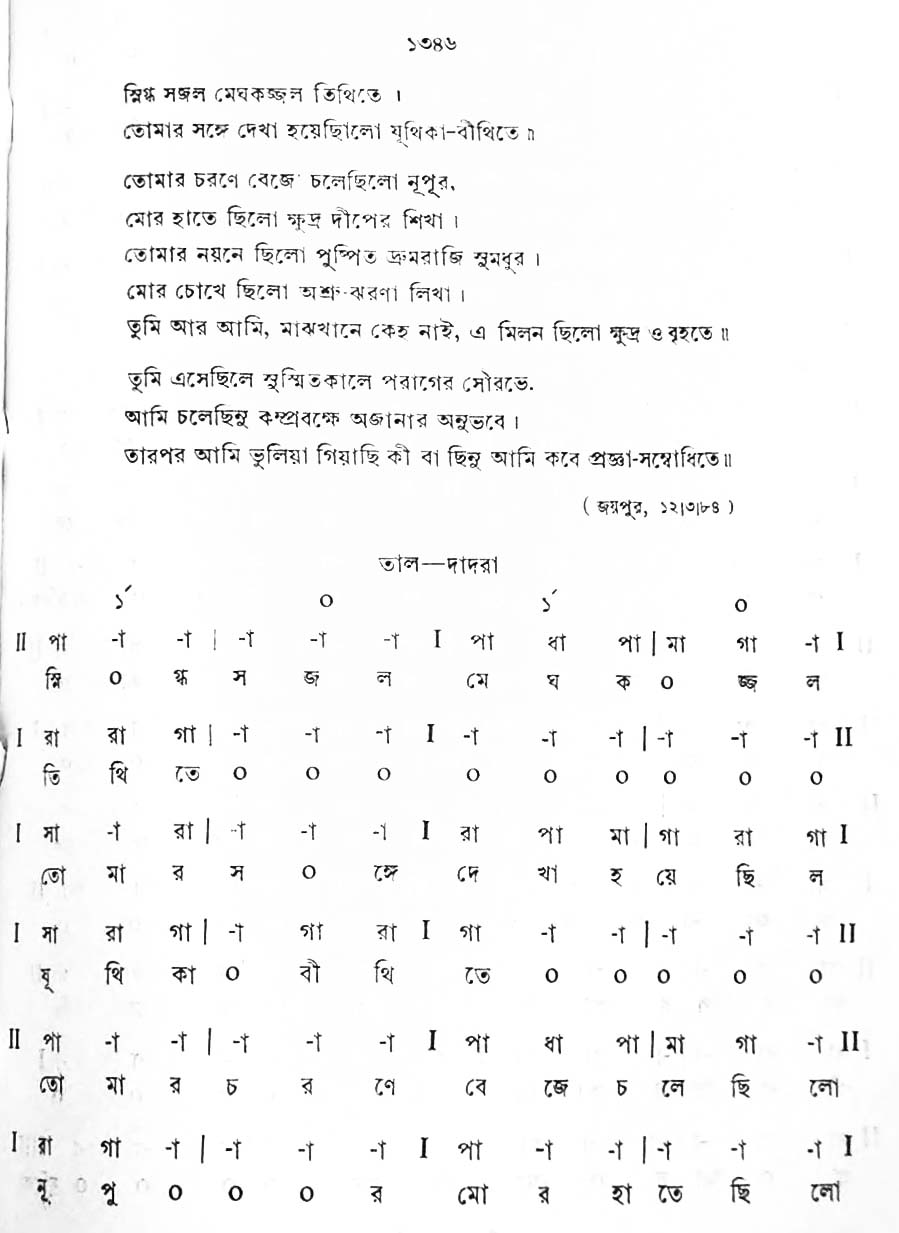 ১৩৪৬
স্নিগ্ধ সজল মেঘকজ্জল তিথিতে ।
তোমার সঙ্গে দেখা হয়েছিলো যূথিকা-বীথিতে ॥
তোমার চরণে বেজে চলেছিলো নূপুর,
মোর হাতে ছিলো ক্ষুদ্র দীপের শিখা ।
তোমার নয়নে ছিলো পুষ্পিত দ্রুমরাজি সুমধুর ।
মোর চোখে ছিলো অশ্রু-ঝরণা লিখা ।
তুমি আর আমি, মাঝখানে কেহ নাই, এ মিলন ছিলো ক্ষুদ্র ও বৃহতে ॥
তুমি এসেছিলে সুস্মিতকালে পরাগের সৌরভে.
আমি চলেছিনু কম্প্রবক্ষে অজানার অনুভবে ।
তারপর আমি ভুলিয়া গিয়াছি কী বা ছিনু আমি কবে প্রজ্ঞা-সম্বোধিতে॥
( জয়পুর, ১২|৩|৮৪ )
তাল—দাদরা
১´ ০ ১´ ০
II পা -া -া | -া -া -া I পা ধা পা | মা গা -া I
স্নি ০ গ্ধ স জ ল মে ঘ ক ০ জ্জ ল
I রা রা গা | -া -া -া I -া -া -া | -া -া -া II
তি থি তে ০ ০ ০ ০ ০ ০ ০ ০ ০
I সা -া রা | -া -া -া I রা পা মা | গা রা গা I
তো মা র স ০ ঙ্গে দে খা হ য়ে ছি ল
I সা রা গা | -া গা রা I গা -া -া | -া -া -া II
যূ থি কা ০ বী থি তে ০ ০ ০ ০ ০
II পা -া -া | -া -া -া I পা ধা পা | মা গা -া II
তো মা র চ র ণে বে জে চ লে ছি লো
I রা গা -া | -া -া -া I পা -া -া | -া -া -া I
নূ পু ০ ০ ০ র মো র হা তে ছি লো